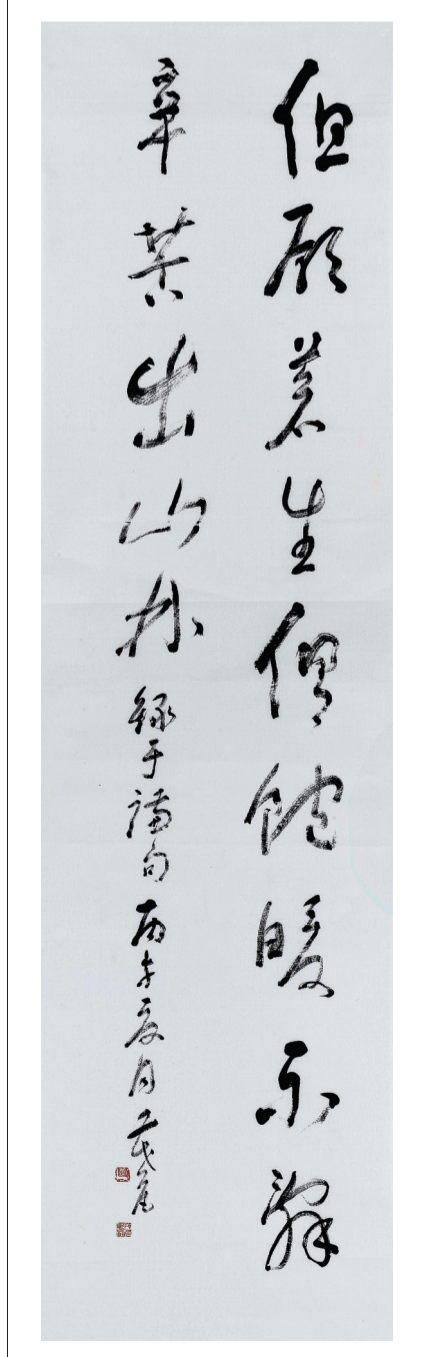 但願蒼生俱飽暖不辭
辛苦出山林 録于謙句 丙午夏月